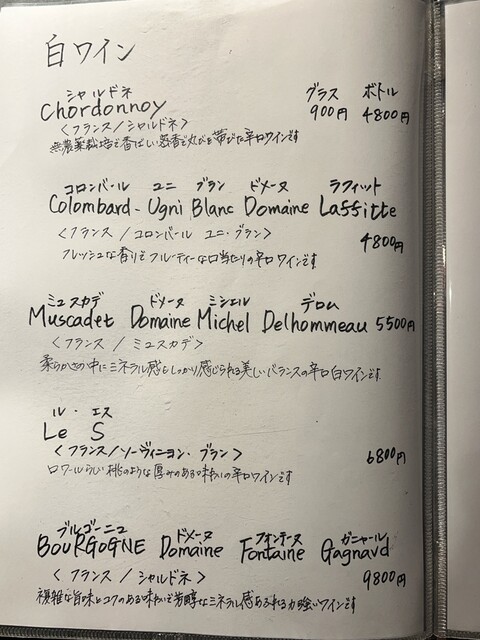 白ワイン
シャルドネ グラス ボトル
Chordonnoy 900円 4800円
<フランス/シャルドネ>
無農薬栽培で香ばしい蒸香で丸びを帯びた辛口ワインです
コロンバール ユニ ブラン ドメーヌ ラフィット
Colombard-Ugni Blanc Domaine Laffitte
<フランス/コロンバール ユニ・ブラン> 4800円
フレッシュな香りでフルーティーな口当たりの辛口ワインです
ミュスカデ ドメーヌ ミシェル デロム
Muscadet Domaine Michel Delhommeau 5500円
<フランス/ミュスカデ>
柔らかさの中にミネラル感もしっかり感じられる美しいバランスの辛口白ワインです
ル・エス
Le S
<フランス/ソーヴィニヨン・ブラン> 6800円
ロワールらしい桃のような厚みのある味わいの辛口ワインです
ブルゴーニュ ドメーヌ フォンテーヌ ガニャール
BOURGOGNE Domaine Fontaine Gagnard
<フランス/シャルドネ> 9800円
複雑な旨味とコクのある味わいで芳醇なミネラル感あふれる力強いワインです